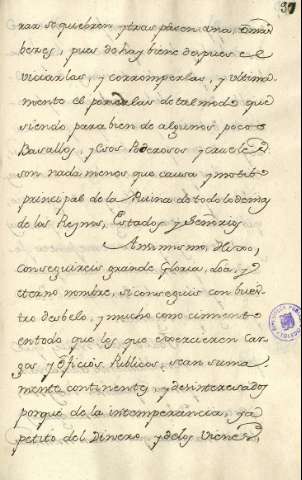 37
rar se quiebren y otras pasen a mas
beres, pues de hay biene despues el
viciarlas, y corromperlas, y ultima
mente el de tal modo que
siendo para bien de algunos pocos
Basallos, y esos Poderosos y crueles
son nada menos que causa y motibo
principal de la Ruina de todo lo demas
de los Reynos, Estados y Señorios
Assimismo, Hixo,
conseguireis grande Gloria, y
eterno nombre, si conseguis con bues
tro desbelo, y mucho conocimiento
en todo que los que exercieren Car
gos y oficios Publicos, sean suma
mente continentes, y desinteresados
porque de la intemperancia, y a
petito del Dinero y de los Vienes,